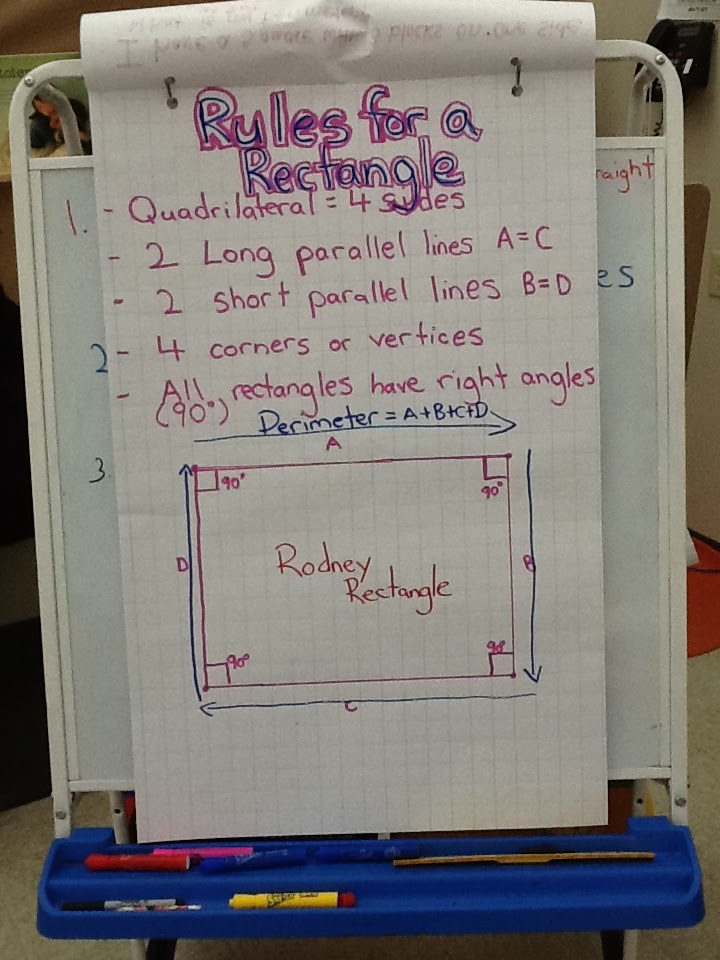 I have a square with 3 blocks on one side
Rules for a
Rectangle
1.
- Quadrilateral = 4 sides
raight
- 2 Long parallel lines A=C
- 2 short parallel lines B=D
es
2
- 4 corners or vertices
- All rectangles have right angles
(90°)
Perimeter = A+B+C+D
A
3.
90°
90°
D
Rodney
Rectangle
B
90°
90°
C